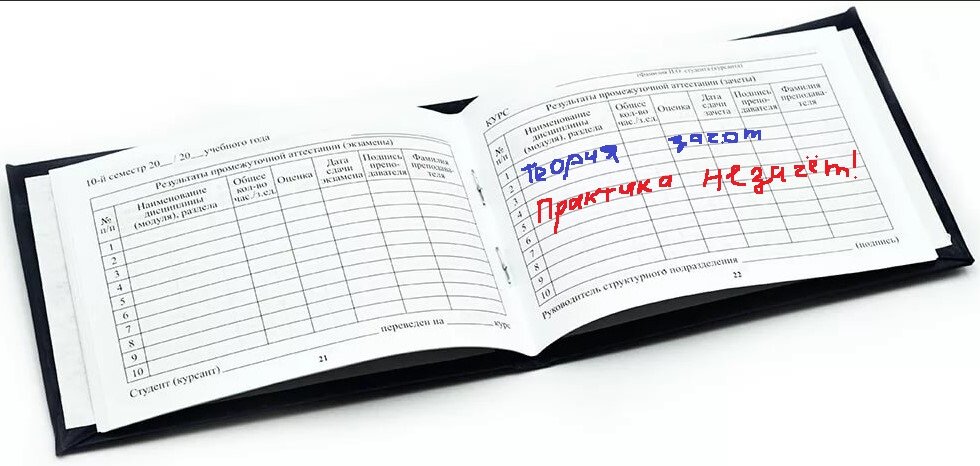 10-й семестр 20__/20__учебного года
Результаты промежуточной аттестации (экзамены)
№ п/п Наименование дисциплины (модуля), раздела Общее кол-во час./з.ед. Оценка Дата сдачи экзамена Подпись препо-давателя Фамилия преподава-теля
1
2
3
4
5
6
7
8
9
10
переведен на ________ курс
Студент (курсант)
21
КУРС
(Фамилия И.О. студента (курсанта))
Результаты промежуточной аттестации (зачеты)
№ п/п Наименование дисциплины (модуля), раздела Общее кол-во час./з.ед. Оценка Дата сдачи зачета Подпись препо-давателя Фамилия преподава-теля
1
2 Теория зачот
3
4 Практика Незачёт!
5
6
7
8
9
10
Руководитель структурного подразделения ________ (подпись)
22